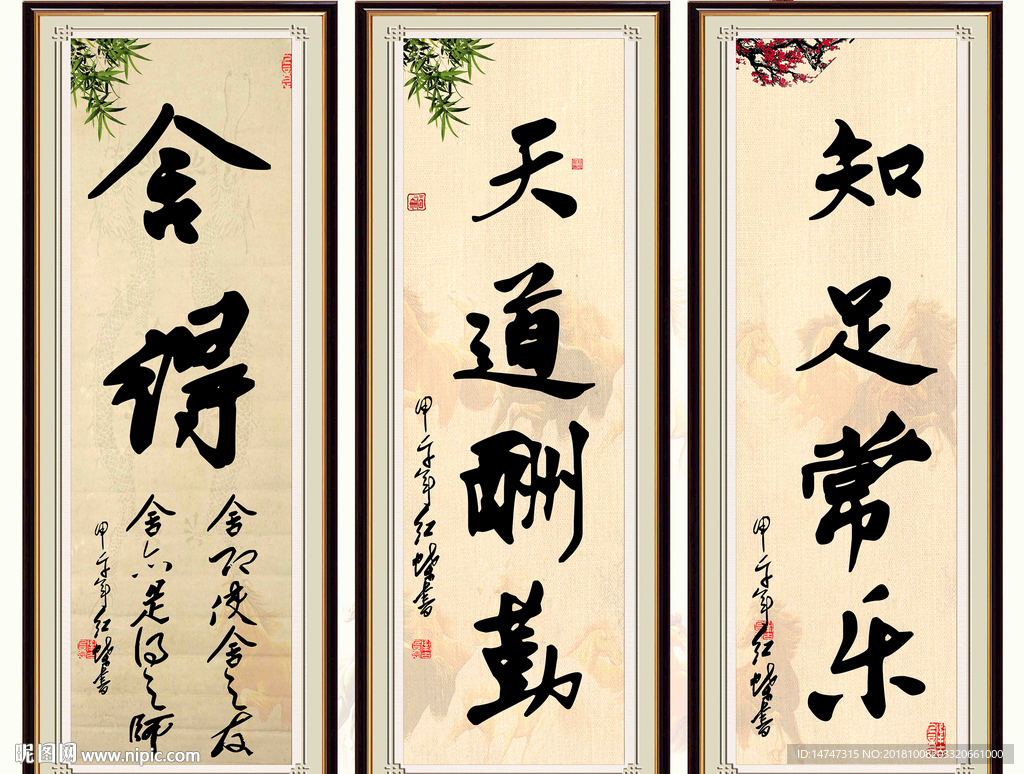 舍得
舍之友
舍亦是得之师
甲午年红蝶书
天道酬勤
甲午年红蝶书
知足常乐
甲午年红蝶书
昵图网 www.nipic.com
ID:14747315 NO:20181008203320661000